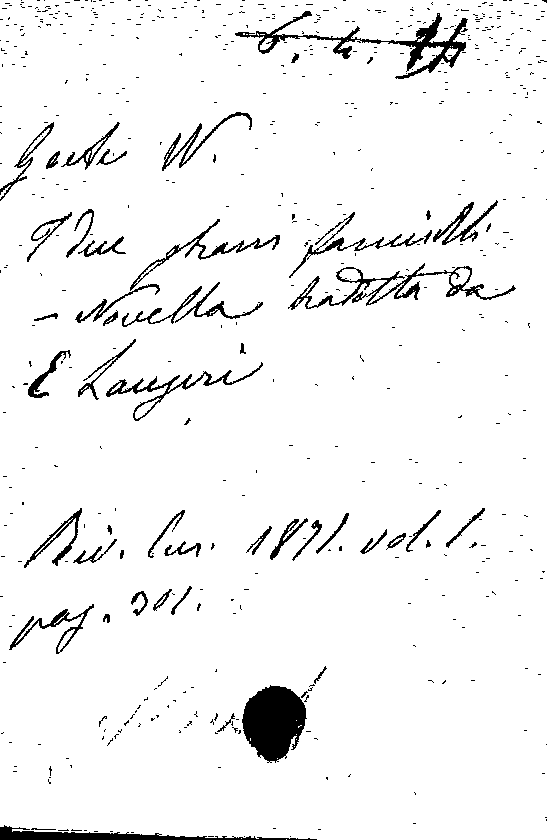 6. 4.
Goethe W.
I due strani fanciulli.
- Novella tradotta da
E Laugeri
Riv. Eur. 1871. vol. 1.
pag. 301.